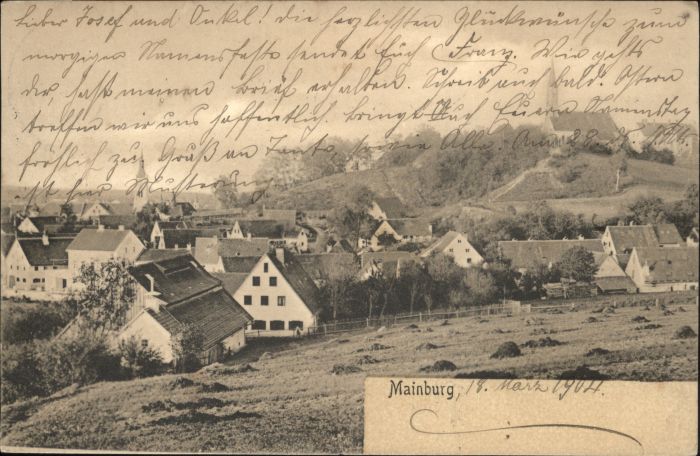 Lieber Josef und Onkel! die herzlichsten Glückwünsche zum
morgigen Namensfeste sendet Euch Franz. Wie gehts
dir, hast meinen brief erhalten. Schreib auch bald. Ostern
treffen wir uns hoffentlich. bringt Euern Namenstag
fröhlich zu. Gruß an Tante, sowie Alle. Am 28.
ist hier Musterung.
Mainburg, 18. März 1904.